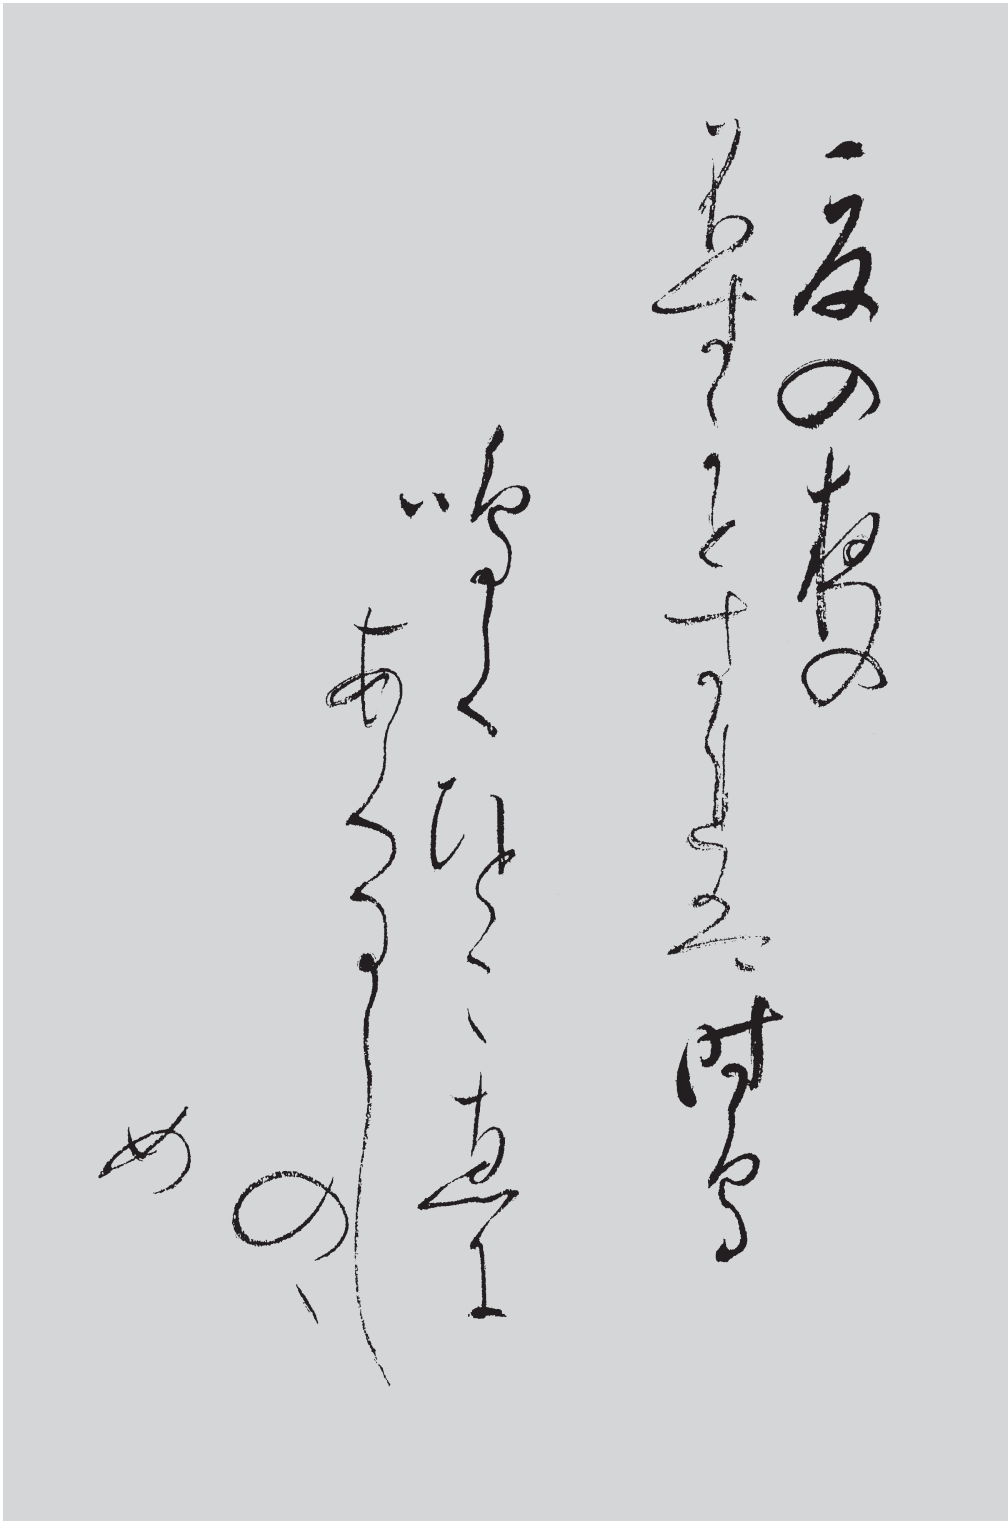 夏の夜の
ふすかとすれば時鳥
鳴くひとこゑに
あくるし
のゝ
め